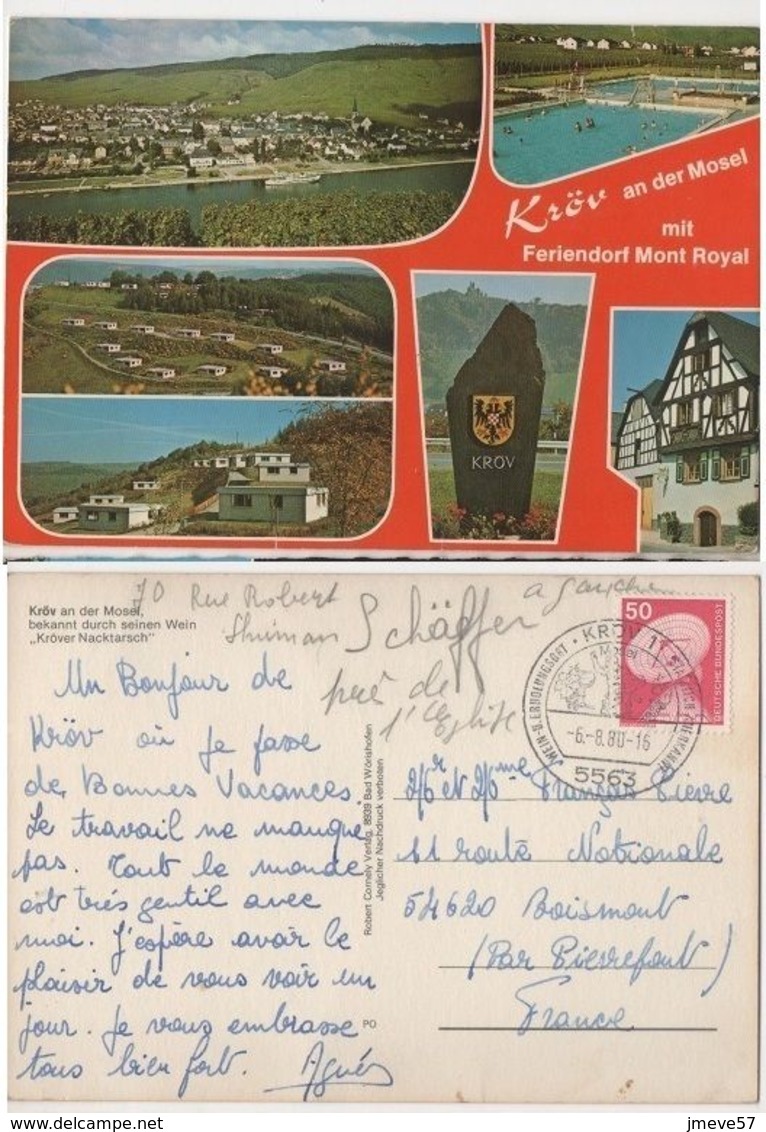 Kröv an der Mosel
mit
Feriendorf Mont Royal
KRÖV
Kröv an der Mosel,
bekannt durch seinen Wein
„Kröver Nacktarsch"
70 Rue Robert
Shuman Schäffer a Gauche
près de
l'Eglise
Un Bonjour de
Kröv où je passe
de Bonnes Vacances.
Le travail ne manque
pas. Tout le monde
est très gentil avec
moi. J'espère avoir le
plaisir de vous voir un
jour. Je vous embrasse
tous bien fort. Agnés
Robert Cornely Verlag, 8939 Bad Wörishofen
Jeglicher Nachdruck verboten
PO
50
DEUTSCHE BUNDESPOST
KRÖV 11
Mosel
WEIN-U.ERHOLUNGSORT
-6.-8.80-16
5563
Mr et Mme François Pierre
11 route Nationale
54620 Boismont
(Par Pierrepont)
France
delcampe.net
jmeve57